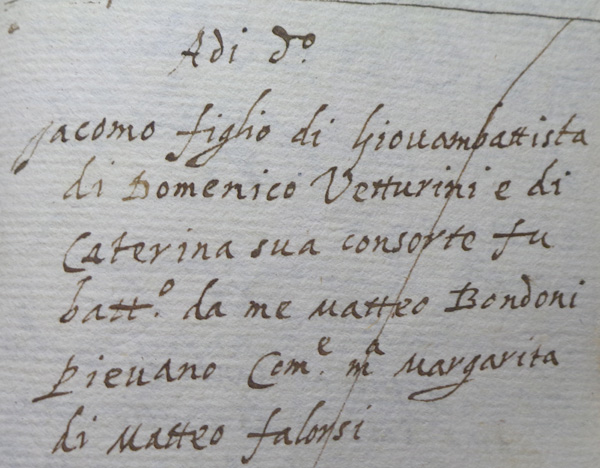 Adi d.º
Jacomo figlio di Giovambattista
di Domenico Vetturini e di
Caterina sua consorte fu
batt.º da me Matteo Bondoni
Pievano Com.e m.a Margarita
di Matteo falonsi